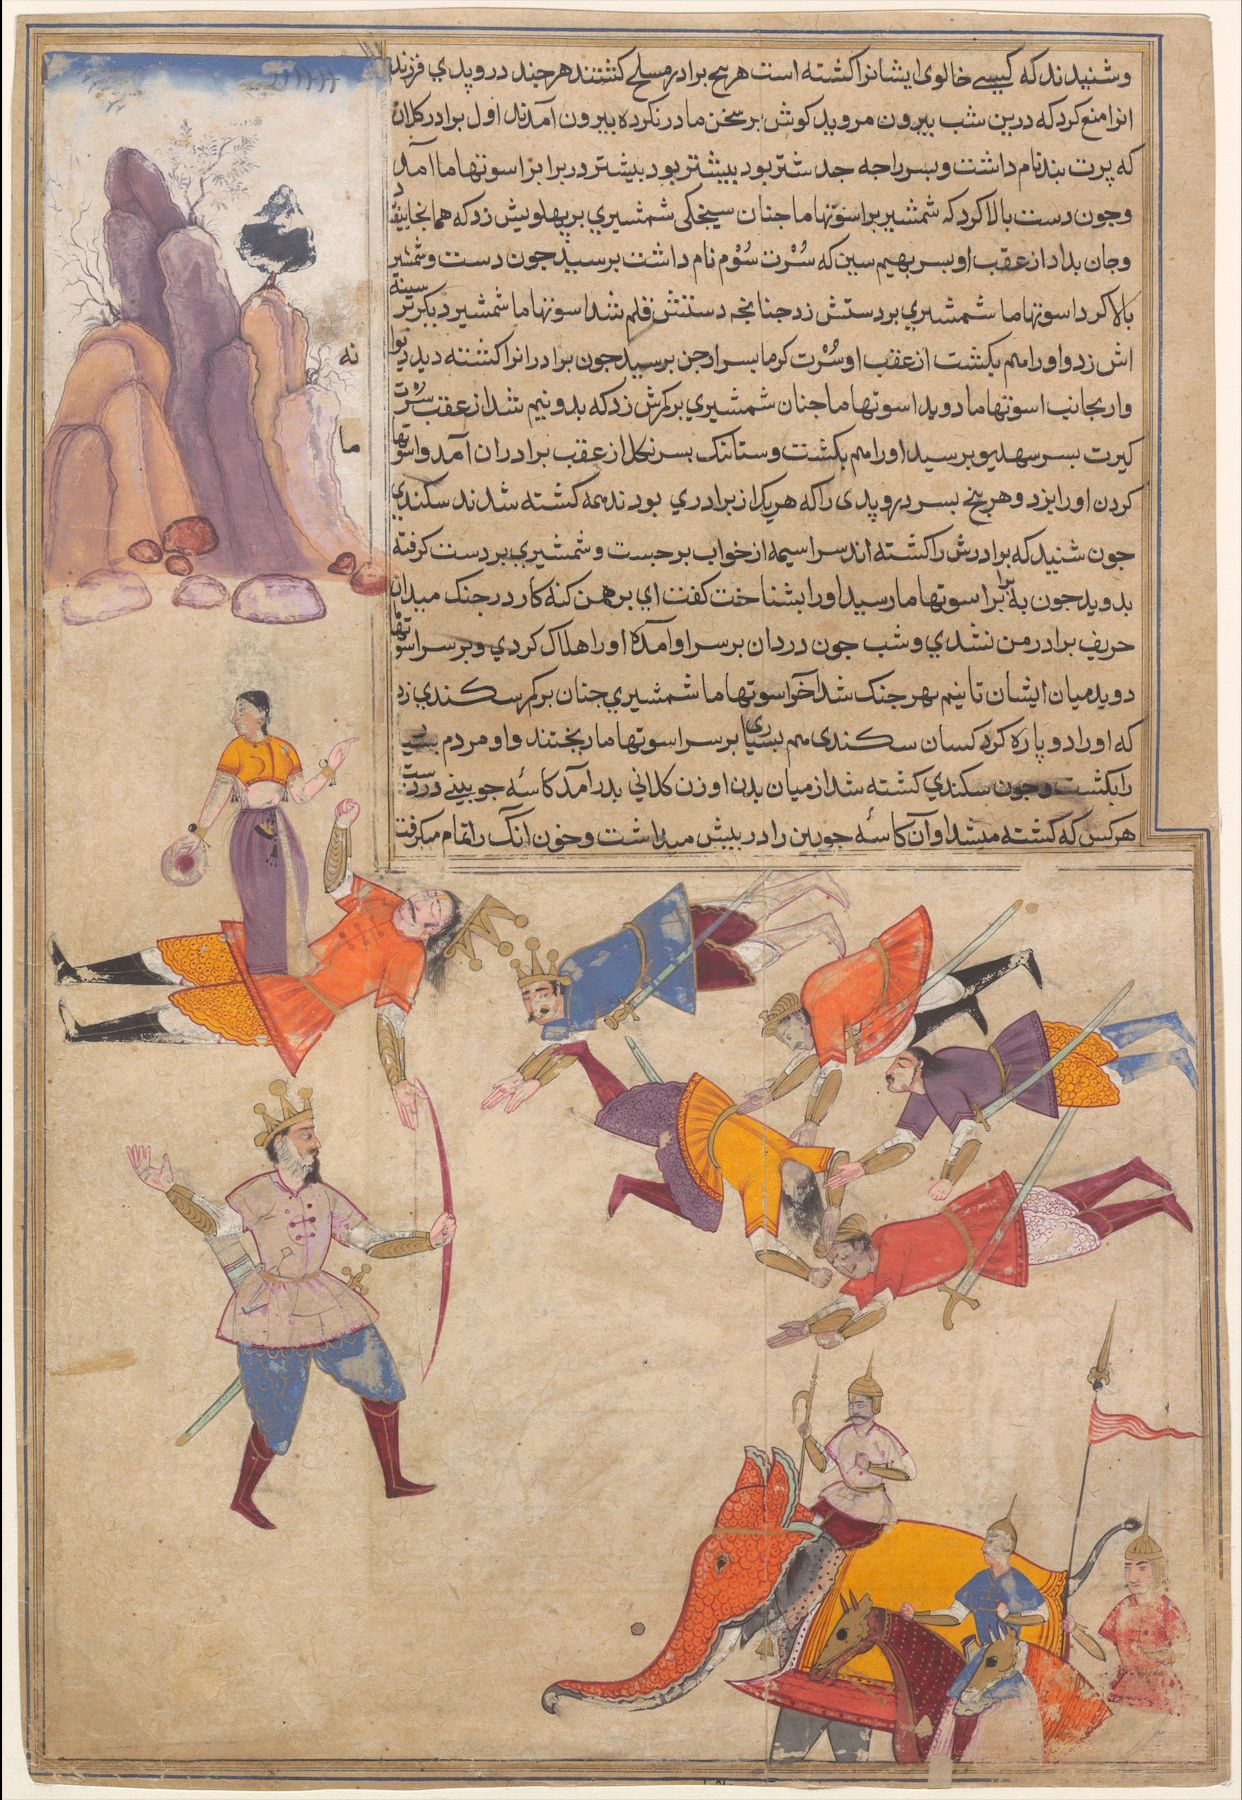 وشنیدند که کیسے خالوی ایشانرا کشته است هر پنج برادر مسلح کشتند هر چند دروپدي فرزند
انرا منع کرد که درین شب بیرون مروید کوش بر سخن مادر نکرده بیرون آمدند اول برادر کلان
که پرت بند نام داشت و پسر راجه جدشتر بود پیشتر بود پیشتر در برابر اسوتهاما آمد
وچون دست بالا کرد که شمشیر بر اسوتهاما چنان شمشیري بر پهلویش زد که همانجا بیفتاد
وجان بداد از عقب او پسر بهیم سین که سُرْت سُوْم نام داشت برسید چون دست وشمشیر
بالا کرد اسوتهاما شمشیري بر دستش زد چنانچه دستش قلم شد اسوتهاما شمشیر دیکر بر سینه
اش زد و اورا هم بکشت از عقب او سُرْت کرما پسر ارجن برسید چون برادرانرا کشته دید
وار بجانب اسوتهاما دوید اسوتهاما چنان شمشیري بر کمرش زد که بدو نیم شد از عقب سُرْت
کیرت پسر سهدیو برسید اورا هم بکشت وستانک پسر نکل از عقب برادران آمد واسوتها
کردن اورا بزد وهر پنج پسر دروپدی را که هر یک از برادري بودند همه کشته شدند سکندي
چون شنید که برادرش را کشته اند سراسیمه از خواب برجست وشمشیري بر دست کرفته
بدوید چون به برابر اسوتهاما رسید اورا بشناخت کفت اي برهمن کنه کار در جنک میدان
حریف برادر من نشدي وشب چون دزدان بر سر او آمده اورا هلاک کردي وبر سر اسوتها
دوید میان ایشان تا نیم پهر جنک شد آخر اسوتهاما شمشیري چنان بر کمر سکندي زد
که اورا دو پاره کرد کسان سکندی هم بسیاری بر سر اسوتهاما ریختند واو مردم بسیار
را بکشت وچون سکندي کشته شد از میان بدن او زن کلاني بدر آمد کاسهٔ چوبینے در دست
هرکس که کشته میشد او آن کاسهٔ چوبین را در پیش میداشت وخون آنکس را تمام میکرفت
نه
ما